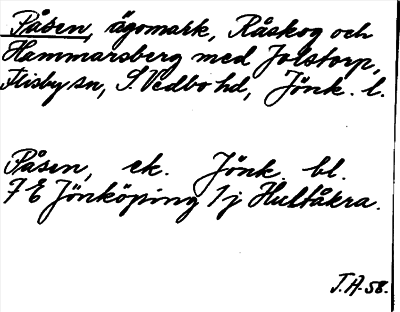 Påsen, ägomark, Råskog och
Hammarsberg med Jolstorp,
Flisby sn, S. Vedbo hd, Jönk. l.
Påsen, ek. Jönk. bl.
7 E Jönköping 1j Hultåkra.
J.A-58.